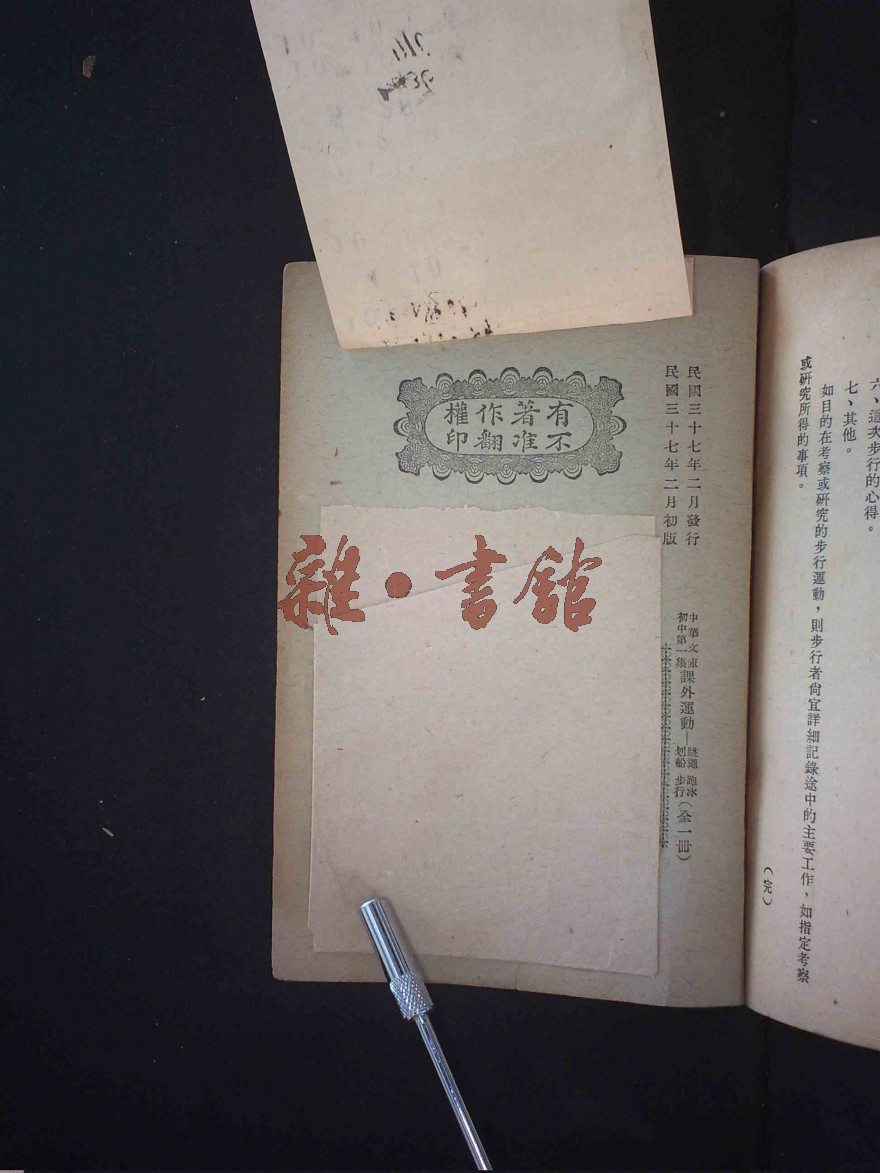 六、這次步行的心得。
七、其他。
如目的在考察或研究的步行運動，則步行者尙宜詳細記錄途中的主要工作，如指定考察
或研究所得的事項。
（完）
民國三十七年二月發行
民國三十七年二月初版
有著作權
不准翻印
中華文庫
初中第一集
課外運動—
跳繩 跑冰
划船 步行
（全一冊）
雜·書館